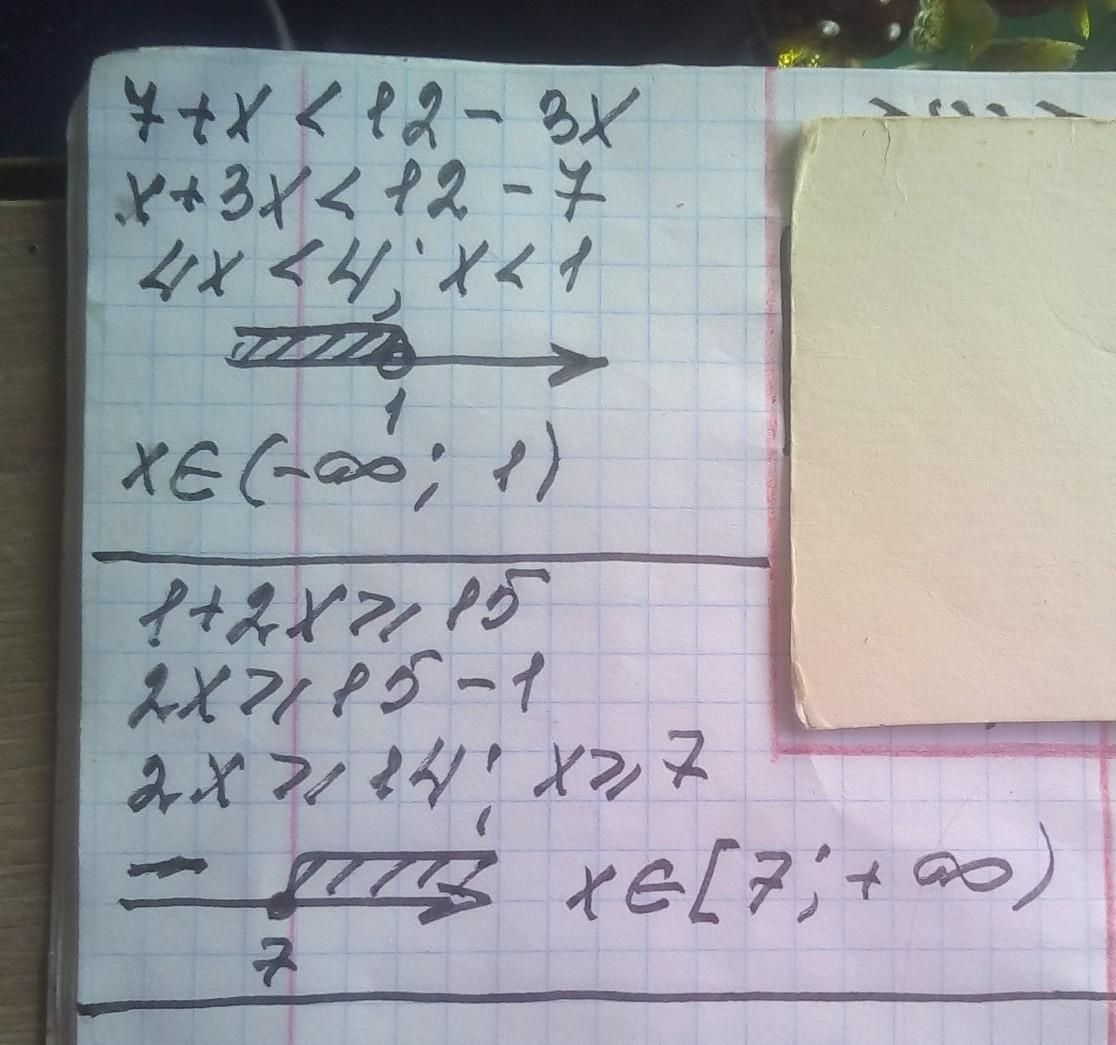 7+x < 12 - 3x
x+3x < 12 - 7
4x < 4; x < 1
1
x∈(-∞; 1)
1+2x ⩾ 15
2x ⩾ 15 - 1
2x ⩾ 14; x ⩾ 7
x∈[7; +∞)
7